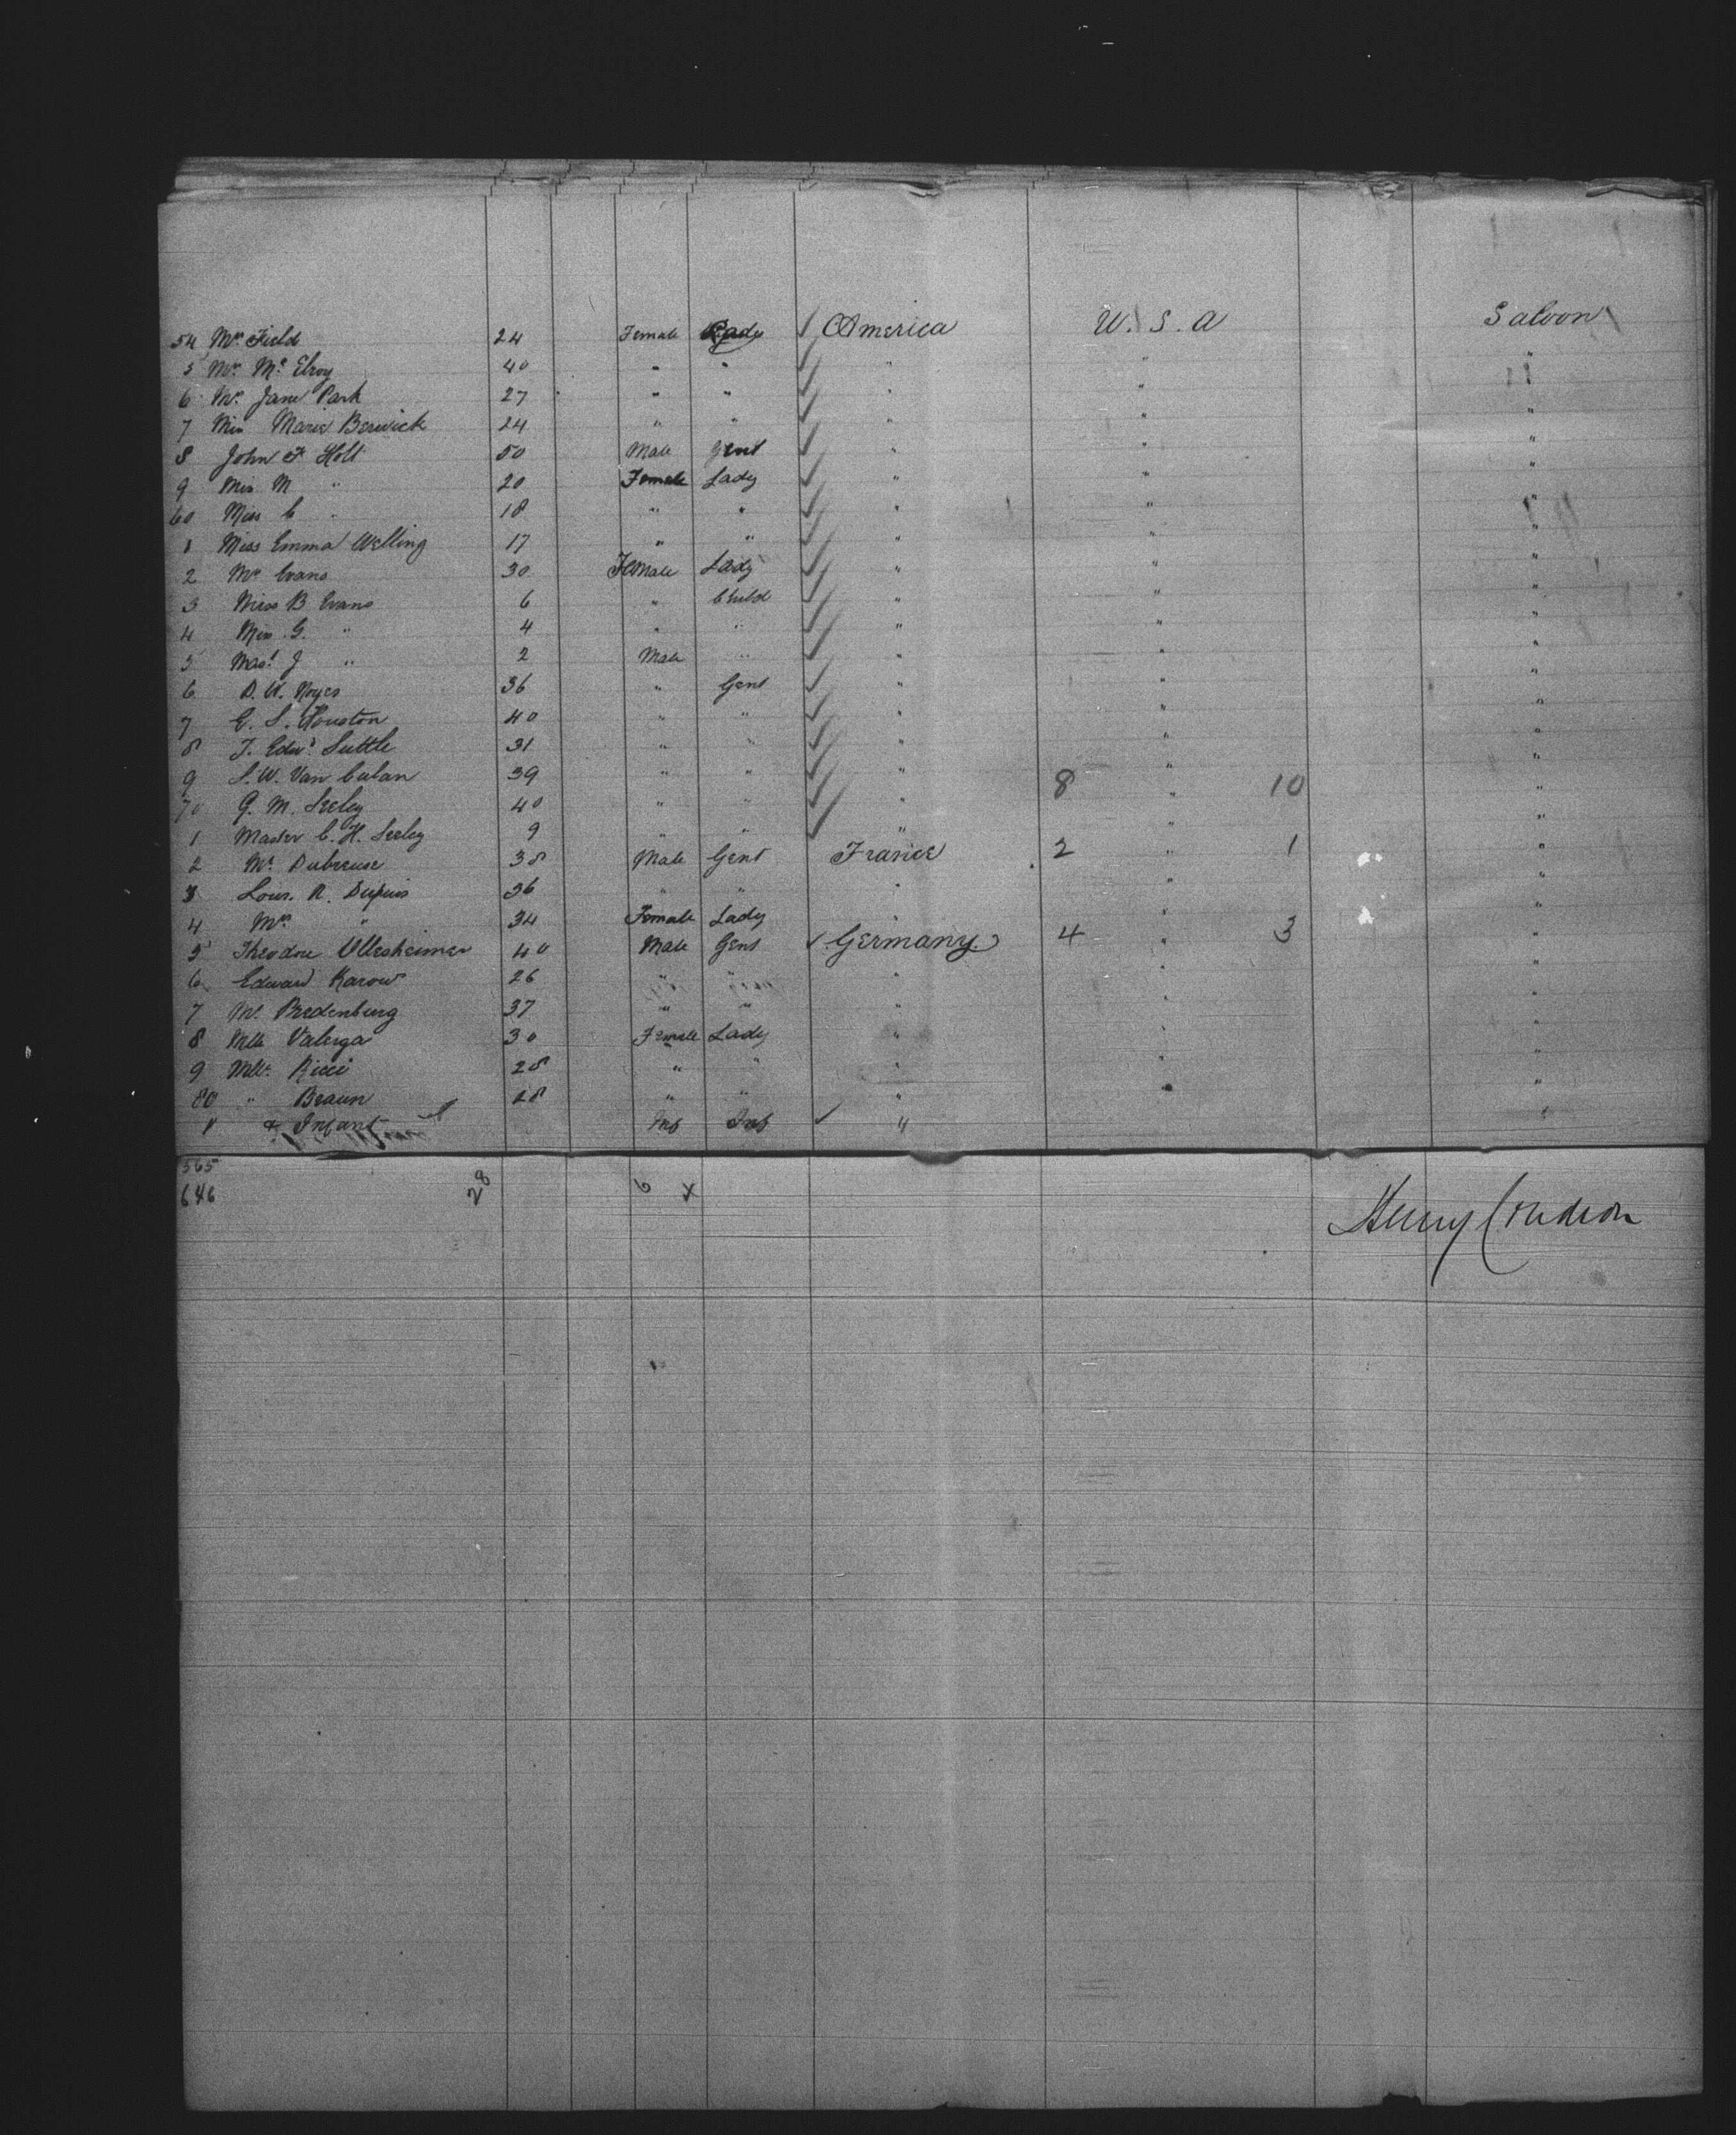 54 Mrs Field 24 Female Lady America U. S. A Saloon
5 Mrs Mc Elroy 40 " " " " "
6 Mrs Jane Park 27 " " " " "
7 Miss Marie Berwick 24 " " " " "
8 John F Holt 50 Male Gent " " "
9 Miss M " 20 Female Lady " " "
60 Miss C " 18 " " " " "
1 Miss Emma Welling 17 " " " " "
2 Mrs Evans 30 Female Lady " " "
3 Miss B Evans 6 " Child " " "
4 Miss G. " 4 " " " " "
5 Mast J " 2 Male " " " "
6 D. W. Noyes 36 " Gent " " "
7 E. S. Houston 40 " " " " "
8 T. Edwd Suttle 31 " " " " "
9 S. W. Van Culan 39 " " " 8 " 10 "
70 G. M. Seeley 40 " " " " "
1 Master C. H. Seeley 9 " " " " "
2 Mr. Dubreuse 38 Male Gent France 2 " 1 "
3 Louis. R. Dupuis 36 " " " " "
4 Mrs " 34 Female Lady " " "
5 Theodore Ullesheimer 40 Male Gent Germany 4 " 3 "
6 Edward Karow 26 " " " " "
7 Mr. Bredenburg 37 " " " " "
8 Mlle Valerga 30 Female Lady " " "
9 Mlle. Ricci 28 " " " " "
80 " Braun 28 " " " " "
1 & Infant Inf Inf " "
565
646 28 6 x
Henry Condron